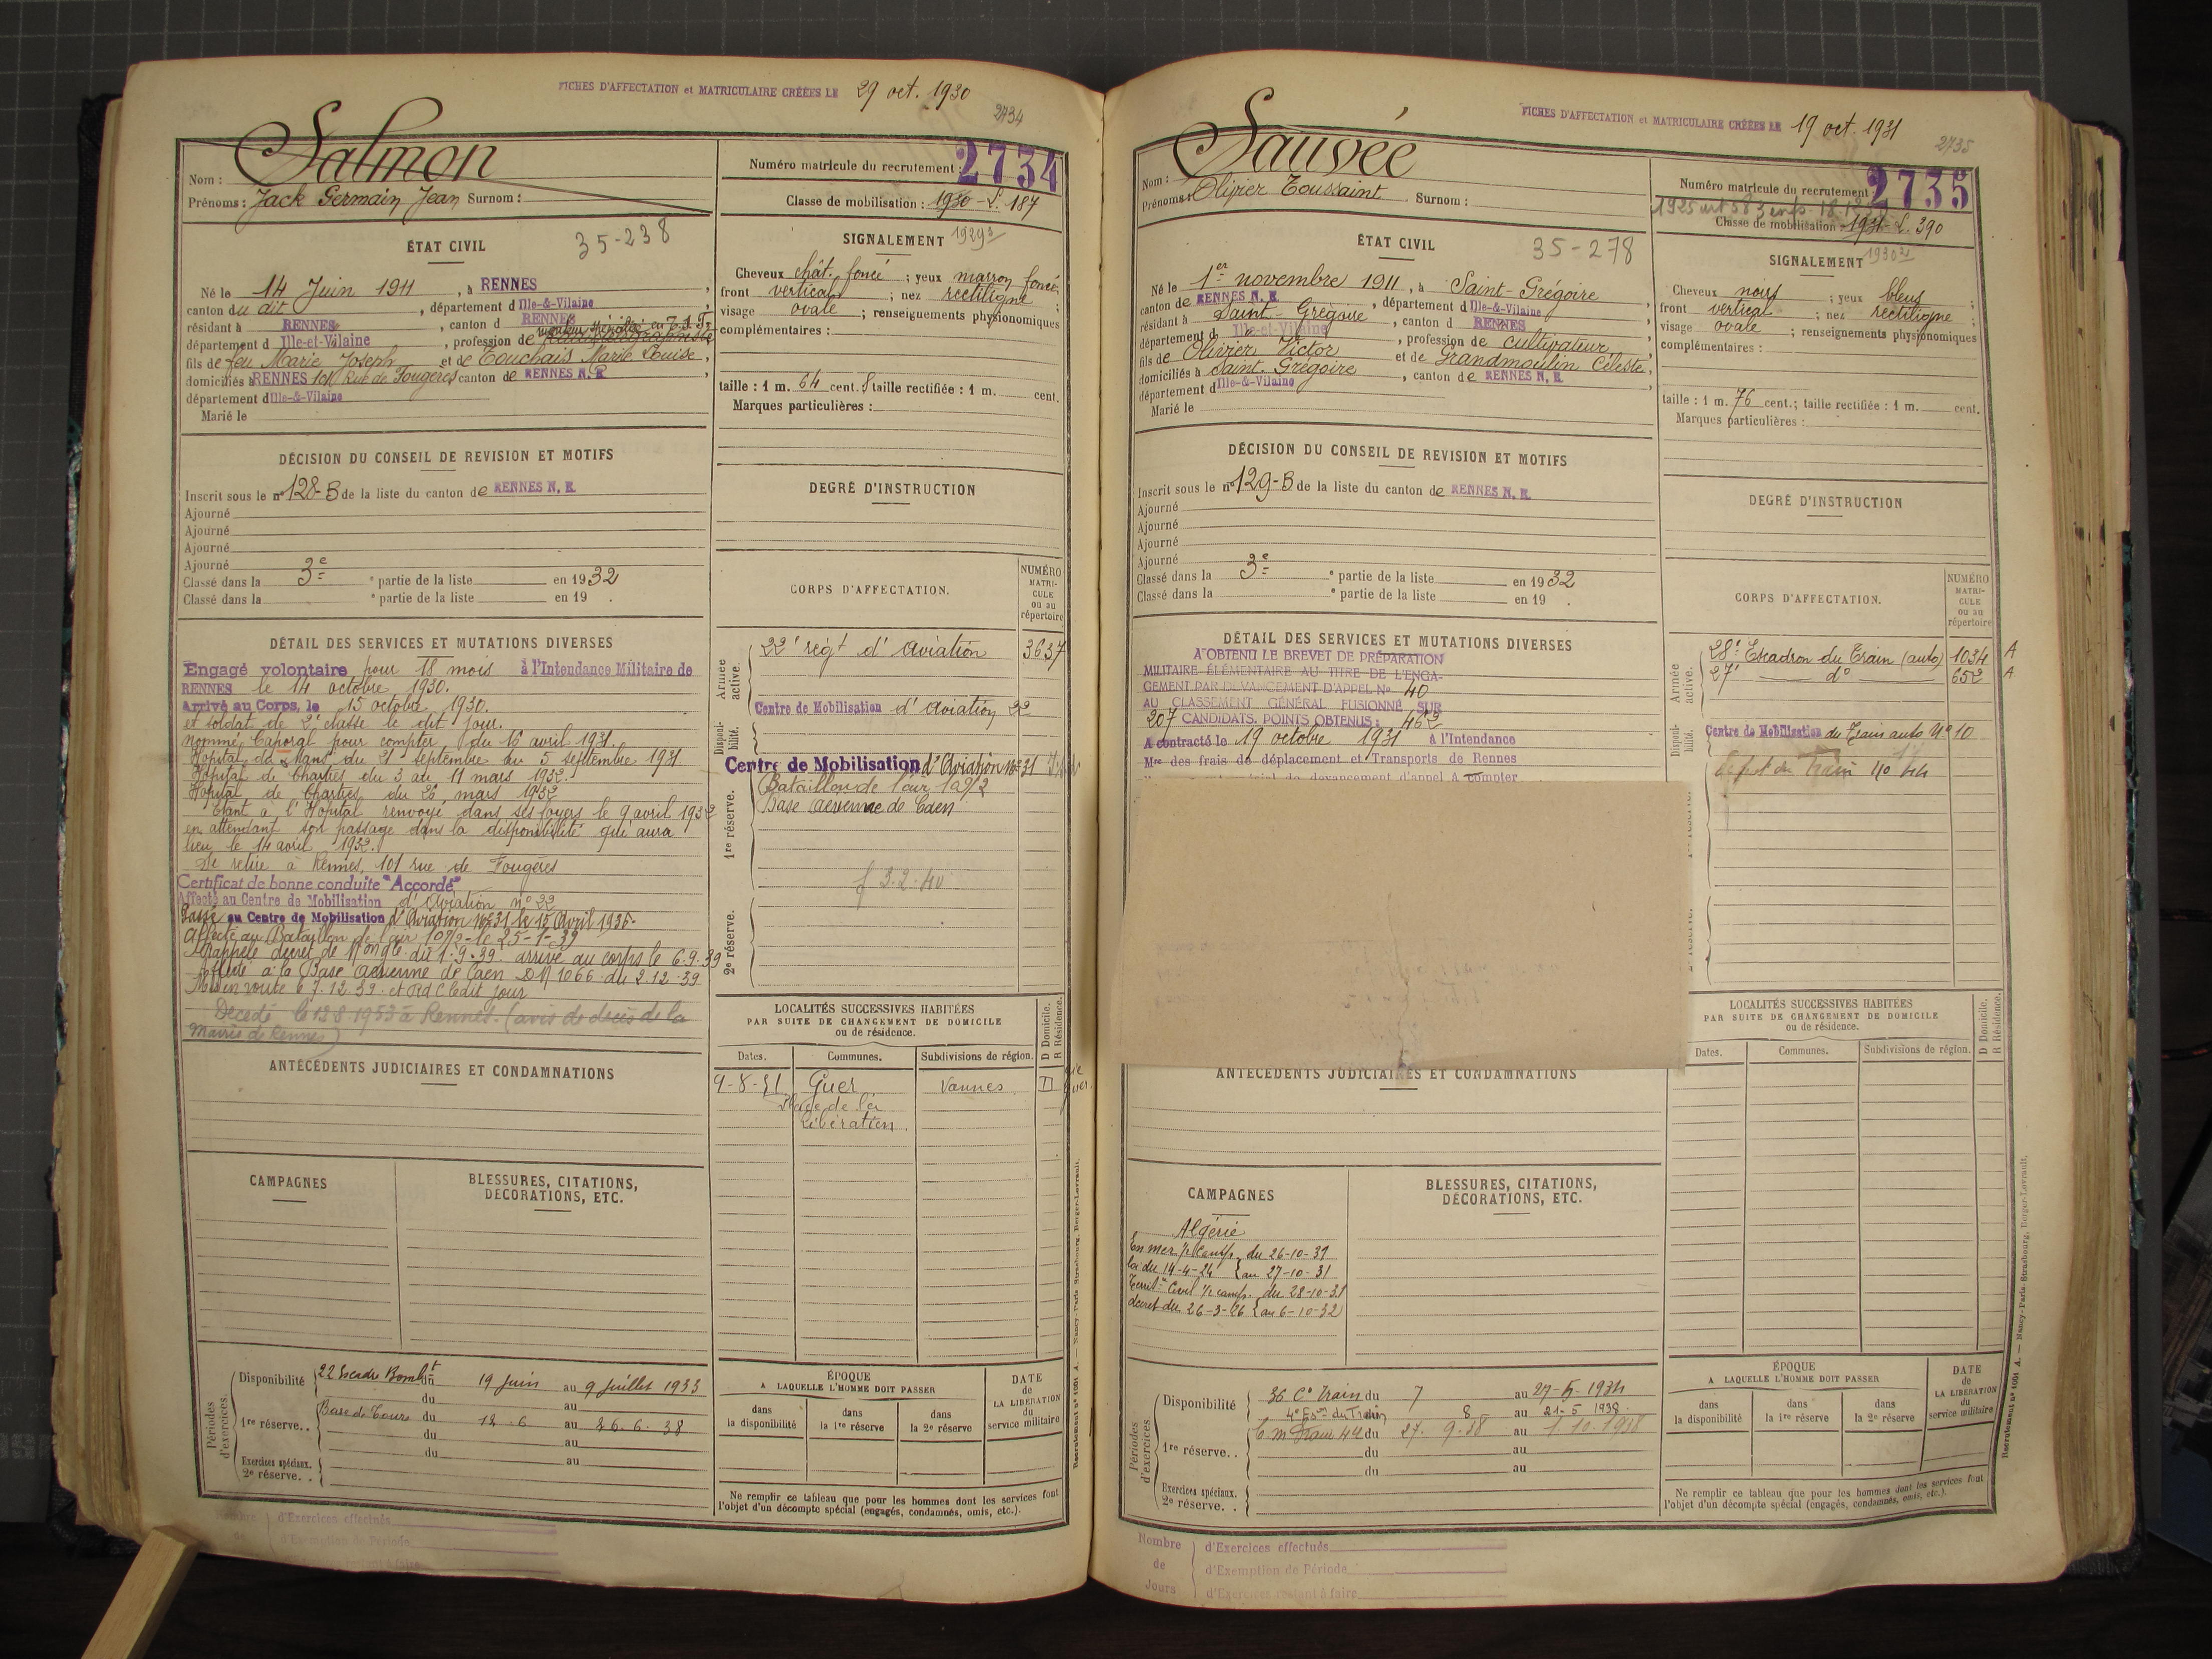 FICHES D'AFFECTATION et MATRICULAIRE CRÉÉES LE 29 oct. 1930
2734
Nom : Salmon
Prénoms : Jack Germain Jean Surnom :
Numéro matricule du recrutement : 2734
Classe de mobilisation : 1930 - L. 187
ÉTAT CIVIL
35-238
Né le 14 Juin 1911, à RENNES,
canton du dit, département d Ille-&-Vilaine
résidant à RENNES, canton d RENNES
département d Ille-et-Vilaine, profession de
fils de feu Marie Joseph et de Touchais Marie Louise,
domiciliés à RENNES 101 Rue de Fougères canton de RENNES N. E.
département d Ille-&-Vilaine
Marié le
SIGNALEMENT
Cheveux chât. foncé ; yeux marron foncé ;
front vertical ; nez rectiligne ;
visage ovale ; renseignements physionomiques
complémentaires :
taille : 1 m. 64 cent. 8 taille rectifiée : 1 m. cent.
Marques particulières :
DÉCISION DU CONSEIL DE REVISION ET MOTIFS
Inscrit sous le n° 128-B de la liste du canton de RENNES N. E.
Ajourné
Ajourné
Ajourné
Ajourné
Classé dans la 3e ° partie de la liste en 1932
Classé dans la ° partie de la liste en 19 .
DEGRÉ D'INSTRUCTION
DÉTAIL DES SERVICES ET MUTATIONS DIVERSES
Engagé volontaire pour 18 mois à l'Intendance Militaire de
RENNES le 14 octobre 1930.
Arrivé au Corps, le 15 octobre 1930.
et soldat de 2e classe le dit jour.
nommé Caporal pour compter du 16 avril 1931.
Hôpital du Mans du 21 septembre au 5 septembre 1931
Hôpital de Chartres du 3 au 11 mars 1932.
Hôpital de Chartres du 26 mars 1932
Etant à l'Hôpital renvoyé dans ses foyers le 9 avril 1932
en attendant son passage dans la disponibilité qui aura
lieu le 14 avril 1932.
Se retire à Rennes, 101 rue de Fougères
Certificat de bonne conduite "Accordé"
Affecté au Centre de Mobilisation d'Aviation n° 22
Passé au Centre de Mobilisation d'Aviation N° 31 le 15 Avril 1935.
Affecté au Bataillon de l'air 109/2 - le 25-1-39
Rappelé décret de Mon Gle du 1.9.39 arrivé au corps le 6.9.39
Affecté à la Base aérienne de Caen DM 1066 du 2.12.39
Mis en route le 7.12.39 et Rd C le dit jour
Décédé le 12 8 1953 à Rennes. (avis de décès de la
Mairie de Rennes)
CORPS D'AFFECTATION.
NUMÉRO MATRICULE ou au répertoire
Armée active.
22e régt d'Aviation 3637
Disponibilité.
Centre de Mobilisation d'Aviation 22
Centre de Mobilisation d'Aviation N° 31
1re réserve.
Bataillon de l'air 109/2
Base aérienne de Caen
f 3.2.40
2e réserve.
ANTÉCÉDENTS JUDICIAIRES ET CONDAMNATIONS
LOCALITÉS SUCCESSIVES HABITÉES
PAR SUITE DE CHANGEMENT DE DOMICILE
ou de résidence.
D Domicile. R Résidence.
Dates. Communes. Subdivisions de région.
9-8-51 Guer Vannes D
Place de la
Libération.
CAMPAGNES
BLESSURES, CITATIONS,
DÉCORATIONS, ETC.
Périodes d'exercices.
Disponibilité 22 Escadre Bombt du 19 Juin au 9 Juillet 1933
du au
1re réserve.. Base de Tours du 12.6 au 26.6.38
du au
du au
Exercices spéciaux.
2e réserve. .
ÉPOQUE
A LAQUELLE L'HOMME DOIT PASSER
dans la disponibilité dans la 1re réserve dans la 2e réserve
DATE de LA LIBÉRATION du service militaire
Ne remplir ce tableau que pour les hommes dont les services font
l'objet d'un décompte spécial (engagés, condamnés, omis, etc.).
Nombre de d'Exercices effectués
d'Exemption de Période
d'Exercices restant à faire
FICHES D'AFFECTATION et MATRICULAIRE CRÉÉES LE 19 oct. 1931
2735
Nom : Sauvée
Prénoms : Olivier Toussaint Surnom :
Numéro matricule du recrutement 2735
Classe de mobilisation : 1931 - L. 390
ÉTAT CIVIL
35-278
Né le 1er novembre 1911, à Saint-Grégoire
canton de RENNES N. E., département d Ille-&-Vilaine
résidant à Saint-Grégoire, canton d RENNES
département d Ille-et-Vilaine, profession de cultivateur
fils de Olivier Victor et de Grandmoulin Céleste,
domiciliés à Saint-Grégoire, canton de RENNES N. E.
département d Ille-&-Vilaine
Marié le
SIGNALEMENT
Cheveux noirs ; yeux bleus ;
front vertical ; nez rectiligne ;
visage ovale ; renseignements physionomiques
complémentaires :
taille : 1 m. 76 cent.; taille rectifiée : 1 m. cent.
Marques particulières :
DÉCISION DU CONSEIL DE REVISION ET MOTIFS
Inscrit sous le n° 129-B de la liste du canton de RENNES N. E.
Ajourné
Ajourné
Ajourné
Ajourné
Classé dans la 3e ° partie de la liste en 1932
Classé dans la ° partie de la liste en 19 .
DEGRÉ D'INSTRUCTION
DÉTAIL DES SERVICES ET MUTATIONS DIVERSES
A OBTENU LE BREVET DE PRÉPARATION
MILITAIRE ÉLÉMENTAIRE AU TITRE DE L'ENGA-
GEMENT PAR DEVANCEMENT D'APPEL N° 40
AU CLASSEMENT GÉNÉRAL FUSIONNÉ SUR
207 CANDIDATS. POINTS OBTENUS : 462
A contracté le 19 octobre 1931 à l'Intendance
Mre des frais de déplacement et Transports de Rennes
devancement d'appel à compter
CORPS D'AFFECTATION.
NUMÉRO MATRICULE ou au répertoire
Armée active.
28e Escadron du Train (auto) 1034 A
27e d° 652 A
Disponibilité.
Centre de Mobilisation du Train auto N° 10
Dépôt du Train 110 44
ANTÉCÉDENTS JUDICIAIRES ET CONDAMNATIONS
LOCALITÉS SUCCESSIVES HABITÉES
PAR SUITE DE CHANGEMENT DE DOMICILE
ou de résidence.
D Domicile. R Résidence.
Dates. Communes. Subdivisions de région.
CAMPAGNES
Algérie
En mer 1/2 campg. du 26-10-31
loi du 14-4-24 au 27-10-31
Territre Civil 1/2 camp. du 28-10-31
décret du 26-3-26 au 6-10-32
BLESSURES, CITATIONS,
DÉCORATIONS, ETC.
Périodes d'exercices
Disponibilité 36 Cie Train du 7 au 27-5-1934
4e Eson du Train 8 au 21-5 1938
C m Train 44 du 27.9.38 au 1 10.1938
1re réserve.. du au
du au
Exercices spéciaux.
2e réserve. .
ÉPOQUE
A LAQUELLE L'HOMME DOIT PASSER
dans la disponibilité dans la 1re réserve dans la 2e réserve
DATE de LA LIBÉRATION du service militaire
Ne remplir ce tableau que pour les hommes dont les services font
l'objet d'un décompte spécial (engagés, condamnés, omis, etc.).
Nombre de Jours d'Exercices effectués
d'Exemption de Période
d'Exercices restant à faire